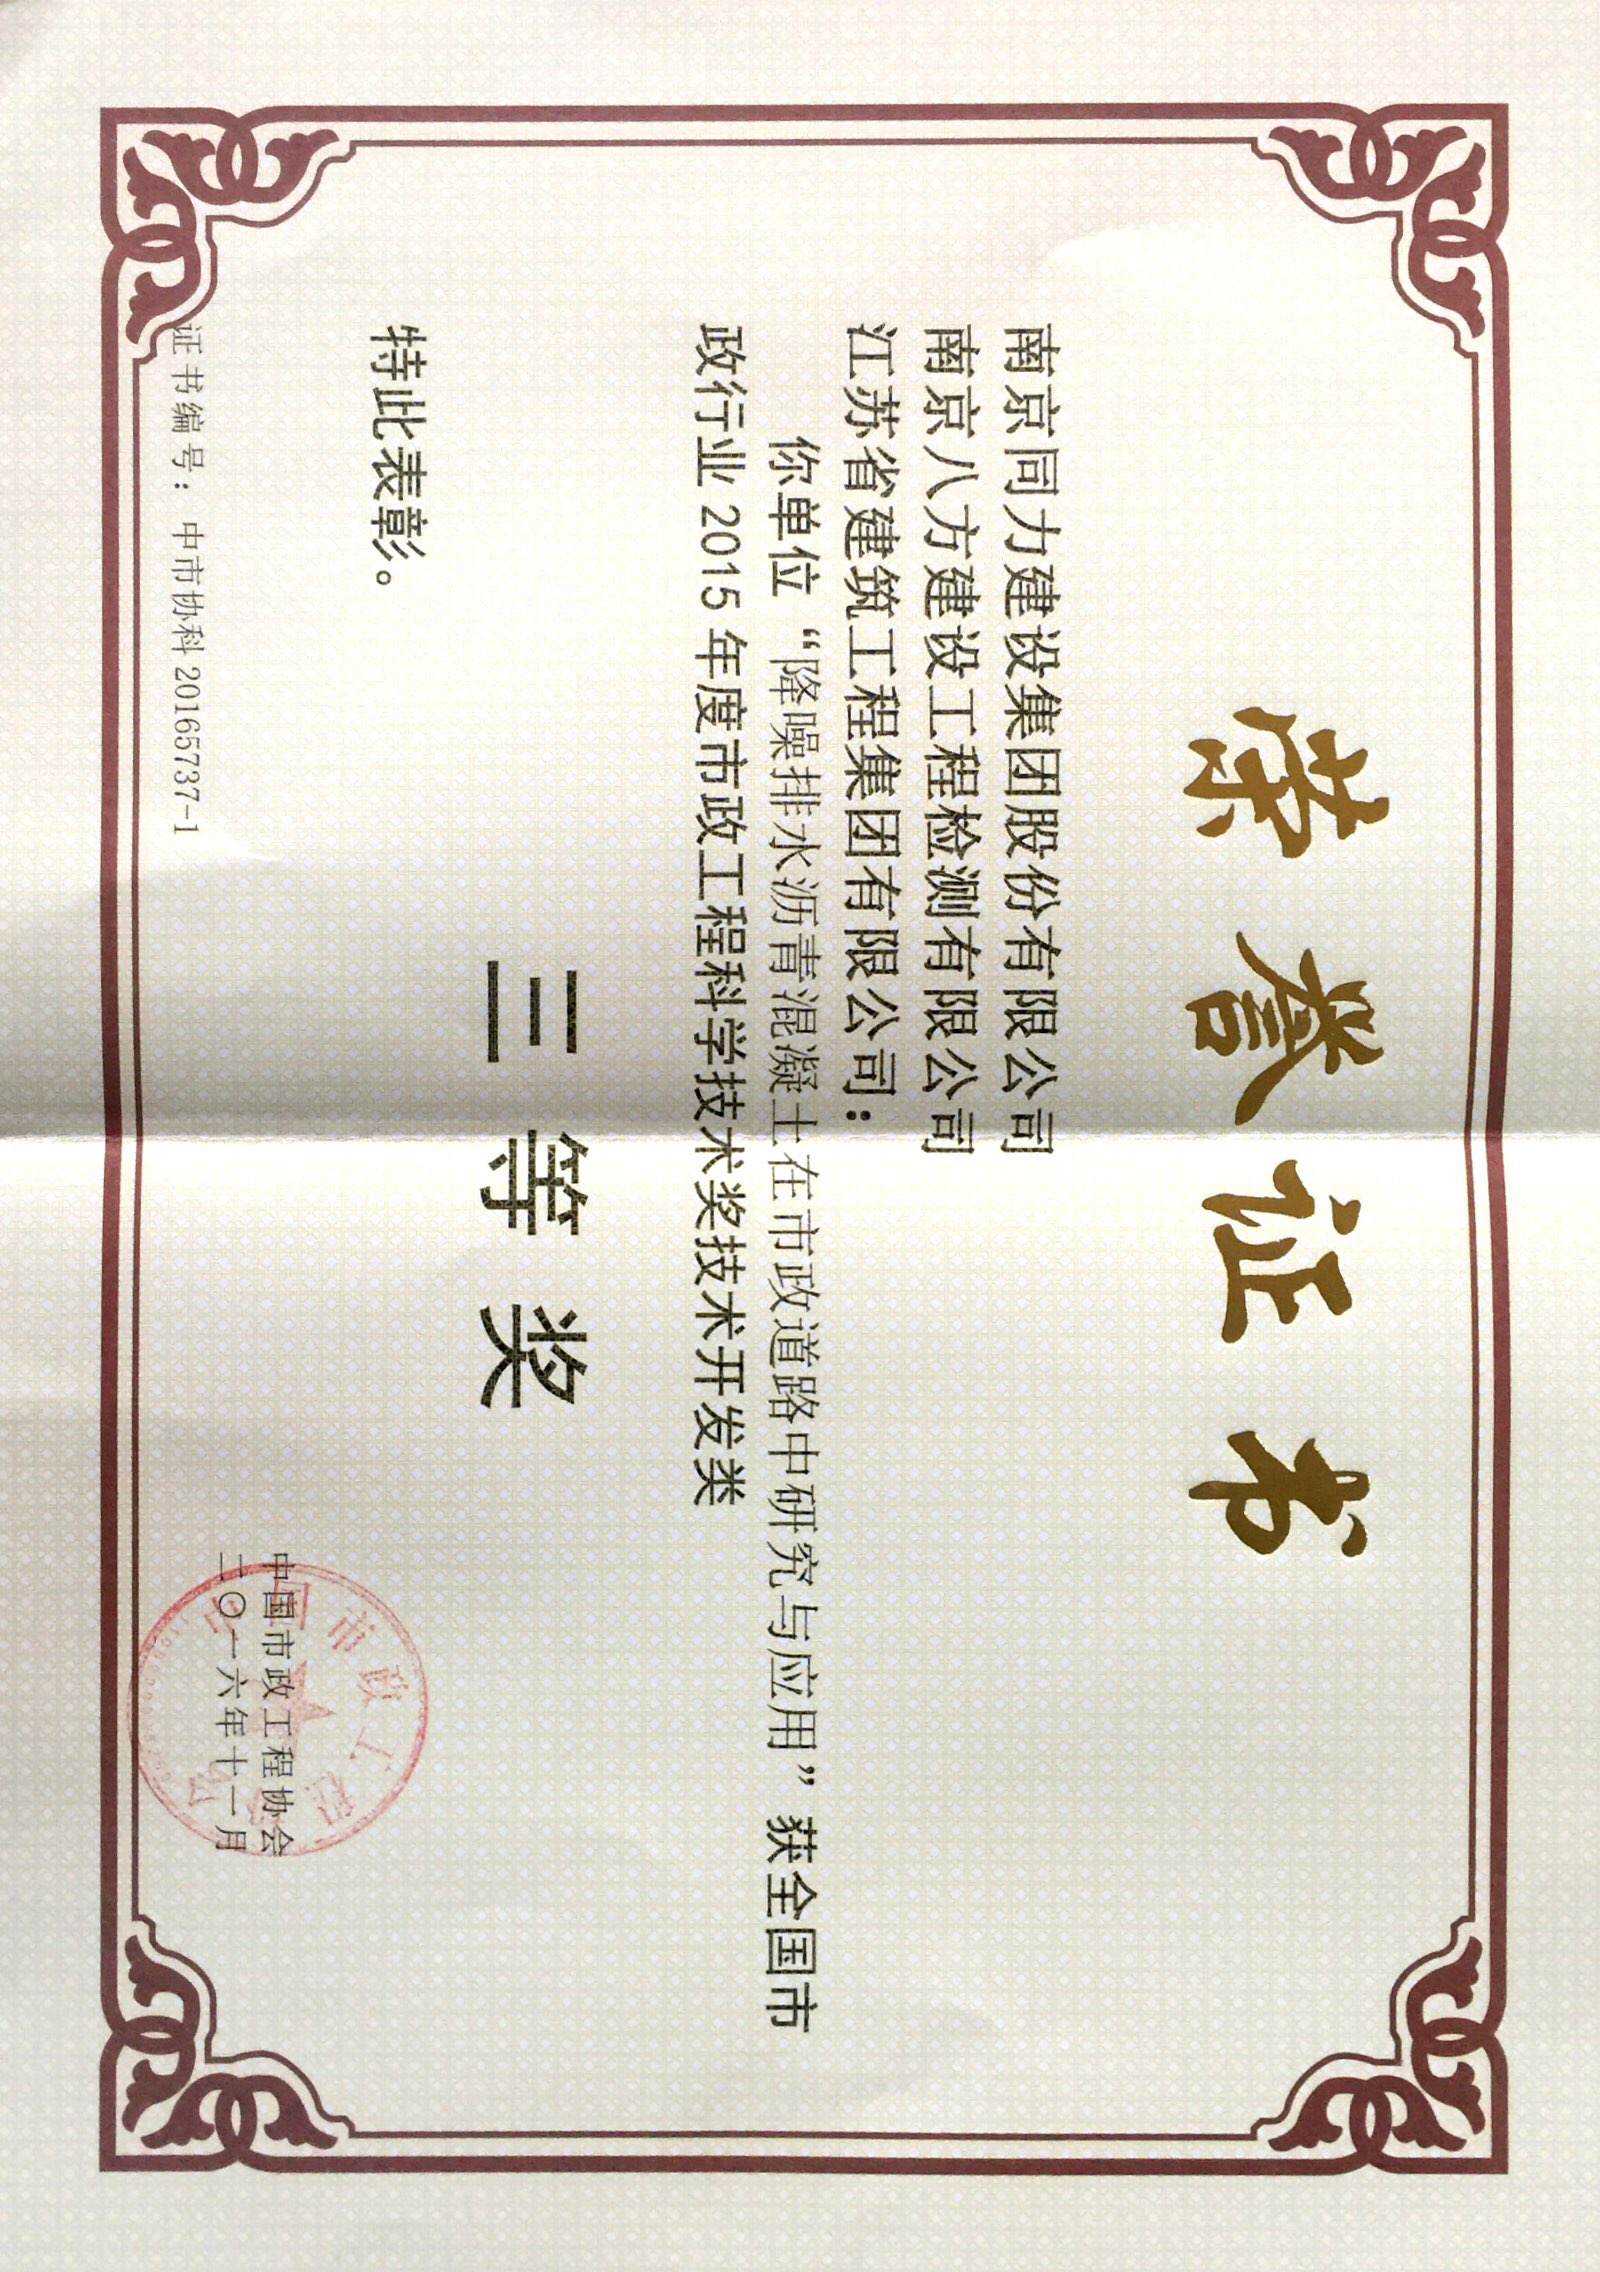 荣誉证书
南京同力建设集团股份有限公司
南京八方建设工程检测有限公司
江苏省建筑工程集团有限公司：
你单位“降噪排水沥青混凝土在市政道路中研究与应用”获全国市
政行业 2015 年度市政工程科学技术奖技术开发类
三等奖
特此表彰。
中国市政工程协会
二〇一六年十一月
证书编号：中市协科 20165737-1
中国市政工程协会